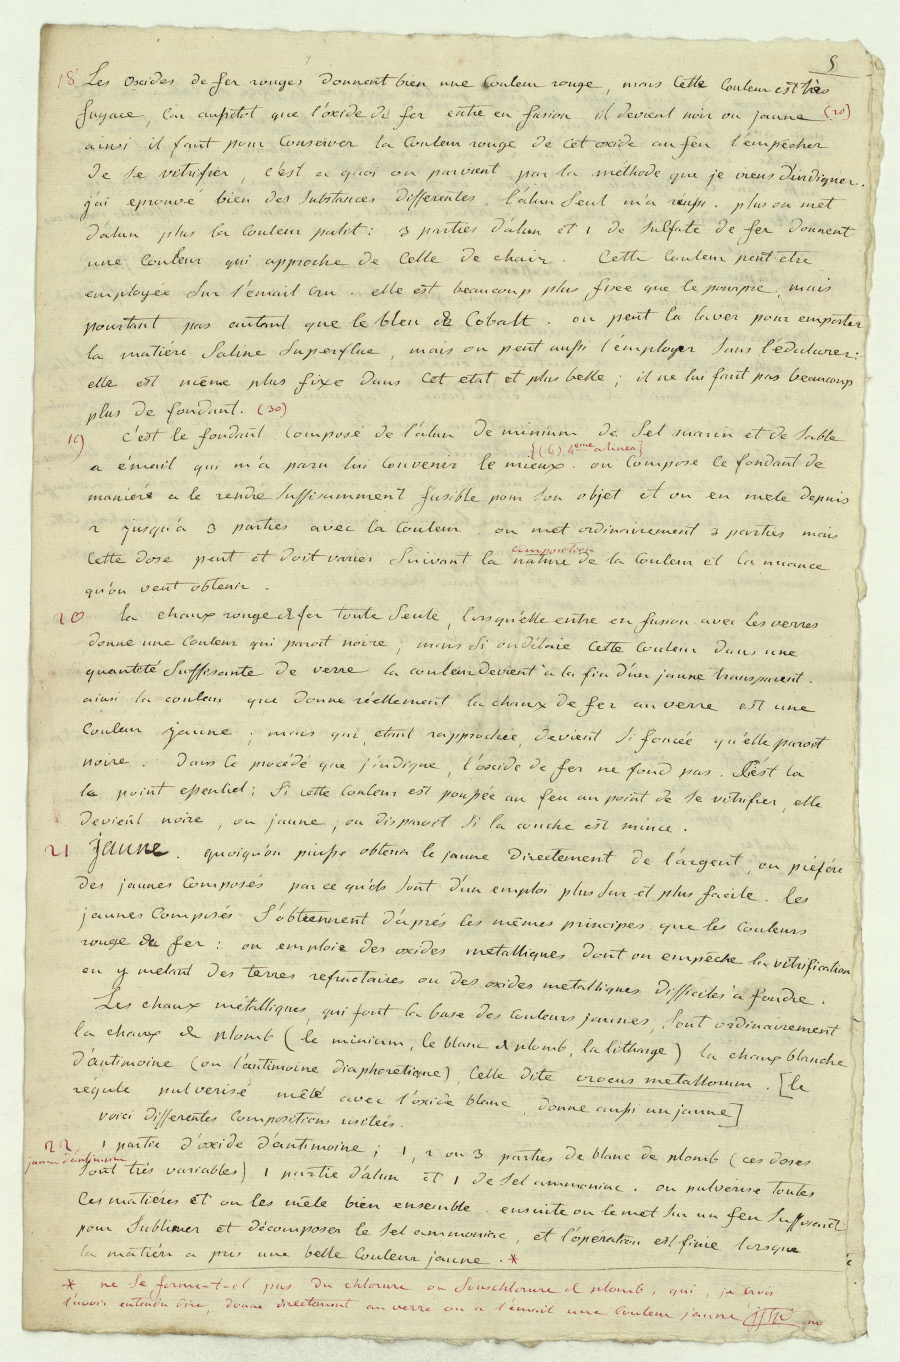 5
18 Les oxides de fer rouges donnent bien une Couleur rouge, mais Cette Couleur est très
fugace, Car aussitot que l'oxide de fer entre en fusion il devient noir ou jaune (20)
ainsi il faut pour Conserver la Couleur rouge de Cet oxide au feu l'empêcher
de se vitrifier, c'est a quoi on parvient par la méthode que je viens d'indiquer.
j'ai eprouvé bien des Substances differentes, l'alun Seul m'a reussi. plus on met
d'alun plus la Couleur palit: 3 parties d'alun et 1 de Sulfate de fer donnent
une Couleur qui approche de Celle de chair. Cette Couleur peut etre
employée Sur l'émail Cru. elle est beaucoup plus fixe que le pourpre, mais
pourtant pas autant que le bleu de Cobalt. on peut la laver pour emporter
la matiére Saline Superflue, mais on peut aussi l'employer Sans l'édulcorer:
elle est même plus fixe dans Cet etat et plus belle; il ne lui faut pas beaucoup
plus de fondant. (30)
19 C'est le fondant Composé de l'alun de minium de Sel marin et de Sable
{(6) 4eme alinea}
a émail qui m'a paru lui Convenir le mieux. on Compose Ce fondant de
maniére a le rendre Suffisamment fusible pour Son objet et on en mele depuis
2 jusqu'à 3 parties avec la Couleur. on met ordinairement 3 parties mais
composition
Cette dose peut et doit varier Suivant la nature de la Couleur et la nuance
qu'on veut obtenir.
20 la chaux rouge de fer toute Seule, lorsqu'elle entre en fusion avec les verres
donne une Couleur qui paroit noire; mais Si on délaie Cette Couleur dans une
quantité Suffisante de verre la couleur devient à la fin d'un jaune transparent.
ainsi la couleur que donne réellement la chaux de fer au verre est une
Couleur jaune; mais qui, etant rapprochée, devient Si foncée qu'elle paroit
noire. dans le procédé que j'indique, l'oxide de fer ne fond pas. C'est la
le point essentiel; Si cette Couleur est poussée au feu au point de Se vitrifier, elle
devient noire, ou jaune; ou disparoit Si la couche est mince.
21 jaune. quoiqu'on puisse obtenir le jaune directement de l'argent, on préfére
des jaunes Composés parce qu'ils Sont d'un emploi plus Sur et plus facile. les
jaunes Composés S'obtiennent d'après les mêmes principes que les Couleurs
rouge du fer: on emploie des oxides metalliques dont on empêche la vitrification
en y melant des terres refractaires ou des oxides metalliques difficiles à fondre.
Les chaux métalliques, qui font la base des Couleurs jaunes, Sont ordinairement
la chaux de plomb (le minium, le blanc de plomb, la litharge) la chaux blanche
d'antimoine (ou l'antimoine diaphoretique) Celle dite crocus metallorum. [le
regule pulverisé mêlé avec l'oxide blanc, donne aussi un jaune]
voici differentes Compositions usitées.
22 1 partie d'oxide d'antimoine; 1, 2 ou 3 parties de blanc de plomb (ces doses
jaune d'antimoine
Sont très variables) 1 partie d'alun et 1 de Sel ammoniac. on pulverise toutes
Ces matieres et on les mêle bien ensemble. ensuite on le met Sur un feu Suffisant
pour Sublimer et décomposer le Sel ammoniac, et l'operation est finie lorsque
la matiére a pris une belle Couleur jaune. *
* ne Se forme-t-il pas du chlorure ou Souschlorure de plomb, qui, je crois
l'avoir entendu dire, donne directement au verre ou a l'émail une Couleur jaune